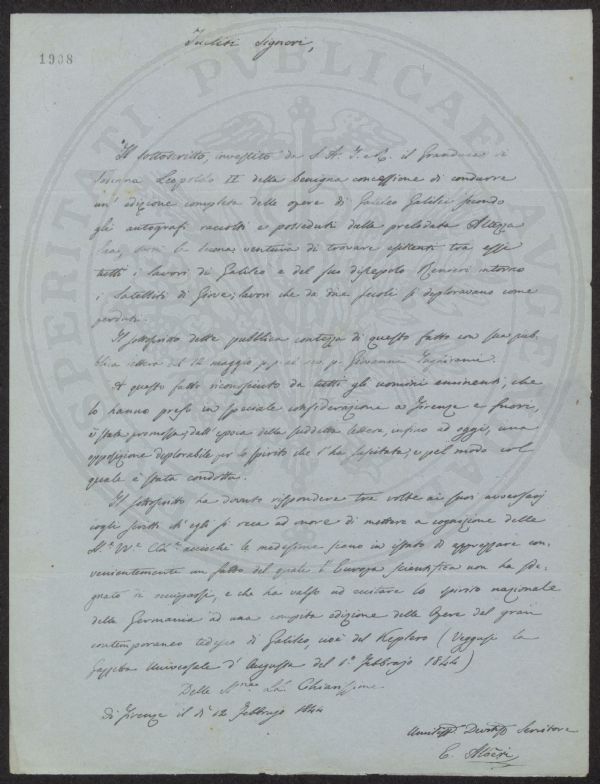 1938
Incliti Signori,
Il sottoscritto, investito da S. A. I. e R. il Granduca di
Toscana Leopoldo II della benigna concessione di condurre
un' edizione completa delle opere di Galileo Galilei secondo
gli autografi raccolti e posseduti dalla prelodata Altezza
Sua, ebbe la buona ventura di trovare esistenti tra essi
tutti i lavori di Galileo e del suo discepolo Renieri intorno
i Satelliti di Giove; lavori che da due secoli si deploravano come
perduti.
Il sottoscritto dette pubblica contezza di questo fatto con sua pub-
blica lettera del 12 maggio p. p. al p. Giovanni Inghirami.
A questo fatto riconosciuto da tutti gli uomini eminenti, che
lo hanno preso in speciale considerazione a Firenze e fuori,
è stata promossa, dall' epoca della suddetta lettera, infino ad oggi, una
opposizione deplorabile per lo spirito che l' ha suscitata, e pel modo col
quale è stata condotta.
Il sottoscritto ha dovuto rispondere tre volte ai suoi avversarj
cogli scritti ch' egli si reca ad onore di mettere a cognizione delle
acciochè le medesime siano in istato di apprezzare con-
venientemente un fatto del quale l' Europa scientifica non ha sde-
gnato di occuparsi, e che ha valso ad eccitare lo spirito nazionale
della Germania ad una compita edizione delle Opere del gran
contemporaneo tedesco di Galileo, cioè del Keplero (Veggasi la
Gazzetta Universale d' Augusta del 1.° Febbrajo 1844)
Delle Chiarissime
Di Firenze il dì 12 Febbrajo 1844
Servitore
E. Albèri